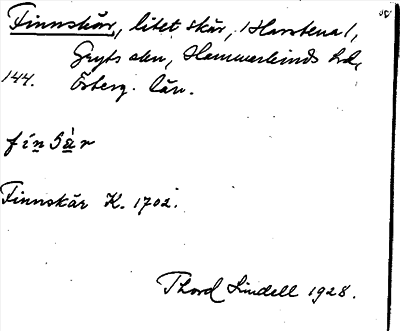 Finnskär, litet skär, (Harstena),
Gryts skn, Hammarkinds hd,
144. Österg. län.
Finnskär K. 1702.
Thord Lindell 1928.